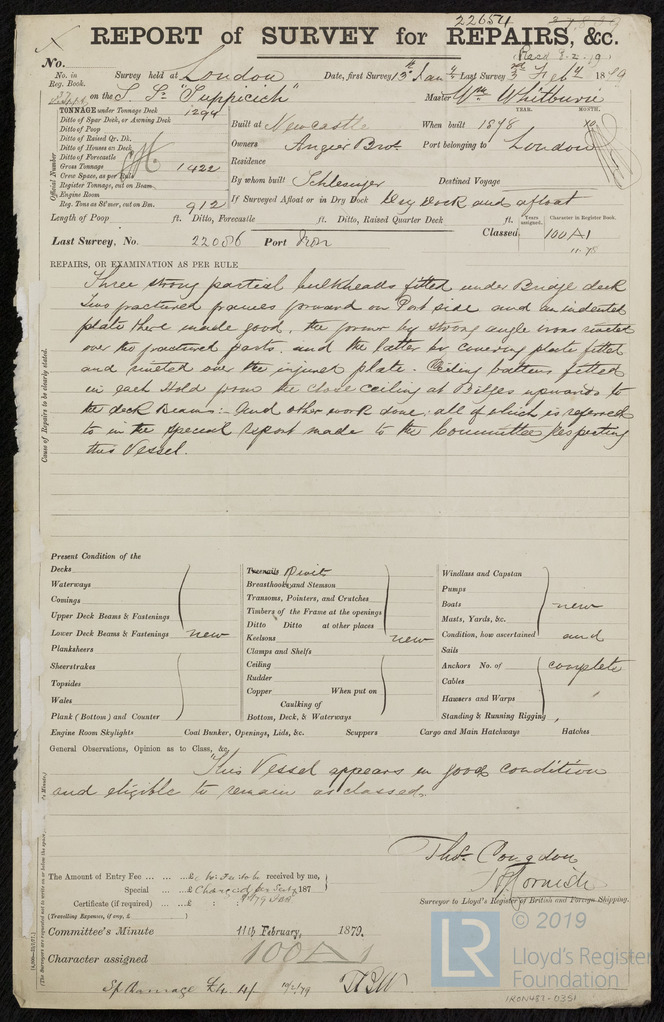 22654
REPORT of SURVEY for REPAIRS, &c.
Recd 3.2.79
No.
No. in Reg. Book.
Survey held at London Date, first Survey 13th Jany Last Survey 3rd Feby 1879
37 on the S. S. "Tuppicich" Master Wm Whitburn
TONNAGE under Tonnage Deck 1294
YEAR. MONTH.
Ditto of Spar Deck, or Awning Deck
Built at Newcastle When built 1878 10
Ditto of Poop
Ditto of Raised Qr. Dk.
Owners Angier Bros. Port belonging to London
Ditto of Houses on Deck
Ditto of Forecastle
Residence
Gross Tonnage 1422
Crew Space, as per Rule
By whom built Schlesinger Destined Voyage
Register Tonnage, cut on Beam
Engine Room
If Surveyed Afloat or in Dry Dock Dry Dock and afloat
Reg. Tons as St'mer, cut on Bm. 912
Official Number
Length of Poop ft. Ditto, Forecastle ft. Ditto, Raised Quarter Deck ft.
Years assigned. Character in Register Book.
Classed 100A1
11.78
Last Survey, No. 22086 Port Lon
REPAIRS, OR EXAMINATION AS PER RULE
Cause of Repairs to be clearly stated.
Three strong partial bulkheads fitted under Bridge deck
Two fractured frames forward on Port side and an indented
plate there made good, the former by strong angle irons riveted
over the fractured parts, and the latter by covering plate fitted
and riveted over the injured plate. Ceiling battens fitted
in each Hold from the close ceiling at Bilges upwards to
the deck Beams:- And other work done; all of which is referred
to in the special report made to the Committee respecting
this Vessel.
Present Condition of the
Decks
Waterways
Comings
Upper Deck Beams & Fastenings
Lower Deck Beams & Fastenings new
Planksheers
Sheerstrakes
Topsides
Wales
Plank (Bottom) and Counter
Treenails Rivets
Breasthooks and Stemson
Transoms, Pointers, and Crutches
Timbers of the Frame at the openings
Ditto Ditto at other places
Keelsons new
Clamps and Shelfs
Ceiling
Rudder
Copper When put on
Caulking of
Bottom, Deck, & Waterways
Windlass and Capstan
Pumps
Boats new
Masts, Yards, &c.
Condition, how ascertained and
Sails
Anchors No. of complete
Cables
Hawsers and Warps
Standing & Running Rigging
Engine Room Skylights Coal Bunker, Openings, Lids, &c. Scuppers Cargo and Main Hatchways Hatches
General Observations, Opinion as to Class, &c.
This Vessel appears in good condition
and eligible to remain as classed.
Thos. Congdon
Cornish
Surveyor to Lloyd's Register of British and Foreign Shipping.
The Amount of Entry Fee ... ... ...£ received by me,
Special ... ...£ Charged 187
Certificate (if required) ... ...£ : :
(Travelling Expenses, if any, £ )
Committee's Minute 11th February, 1879.
Character assigned 100A1
Sp Damage £4.4/ 10/2/79
© 2019
LR
Lloyd's Register
Foundation
IRON487-0351